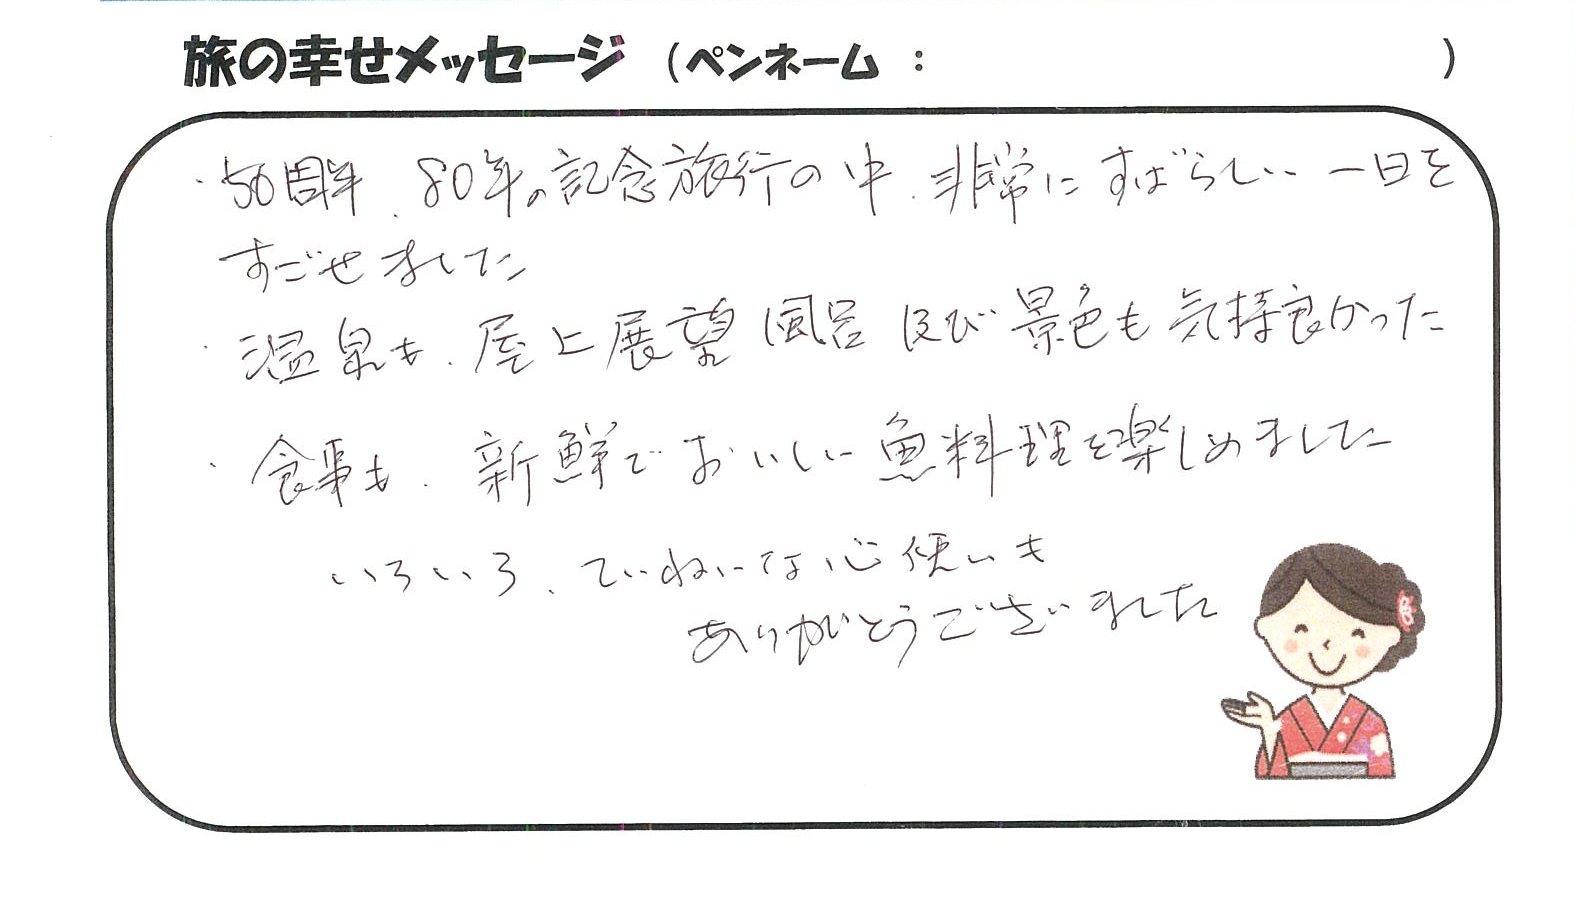 旅の幸せメッセージ (ペンネーム : )
・50周年、80年の記念旅行の中、非常にすばらしい一日を
すごせました
・温泉も、屋上展望風呂 及び 景色も気持良かった
・食事も、新鮮でおいしい魚料理を楽しめました
いろいろ、ていねいな心使いも
ありがとうございました